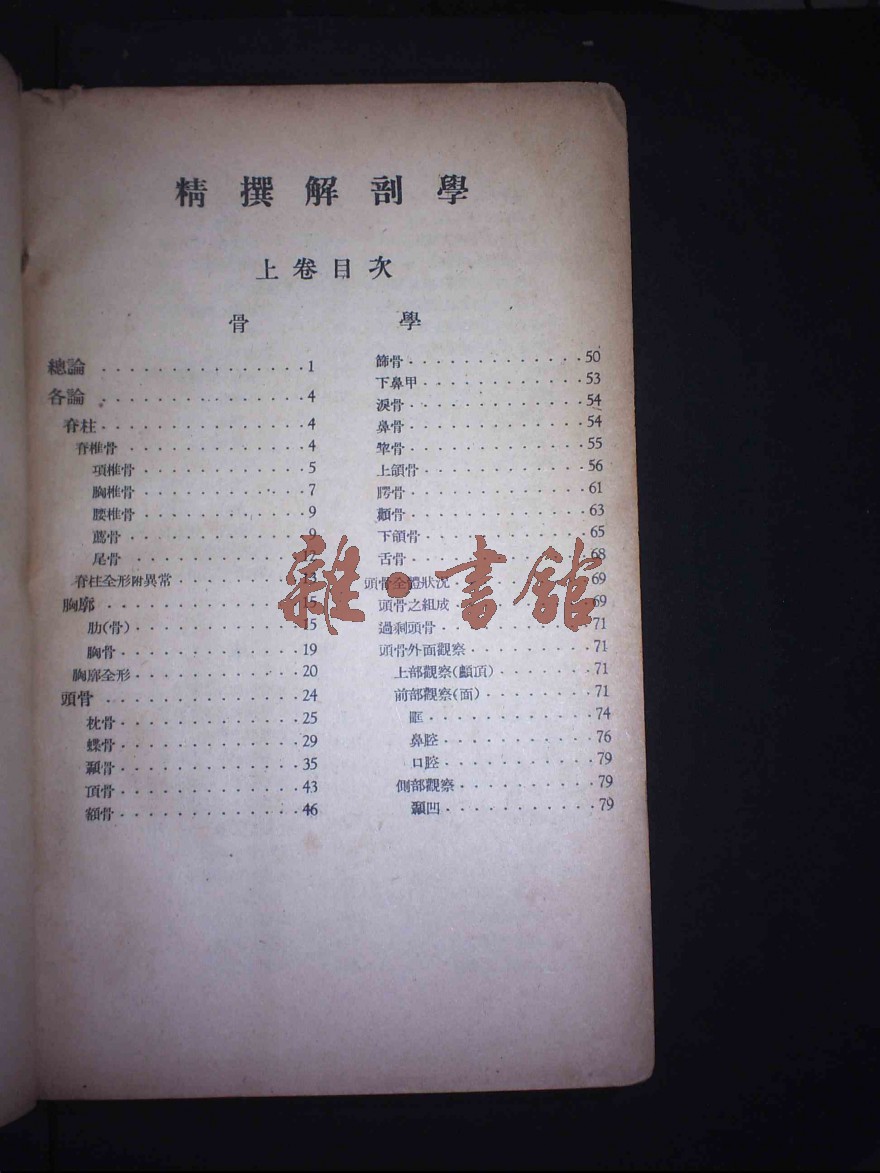 精撰解剖學
上卷目次
骨學
總論 1
各論 4
脊柱 4
脊椎骨 4
項椎骨 5
胸椎骨 7
腰椎骨 9
薦骨 9
尾骨 12
脊柱全形附異常 13
胸廓 15
肋(骨) 15
胸骨 19
胸廓全形 20
頭骨 24
枕骨 25
蝶骨 29
顳骨 35
頂骨 43
額骨 46
篩骨 50
下鼻甲 53
淚骨 54
鼻骨 54
犂骨 55
上頜骨 56
腭骨 61
顴骨 63
下頜骨 65
舌骨 68
頭骨全體狀况 69
頭骨之組成 69
過剩頭骨 71
頭骨外面觀察 71
上部觀察(顱頂) 71
前部觀察(面) 71
眶 74
鼻腔 76
口腔 79
側部觀察 79
顳凹 79
雜·書館